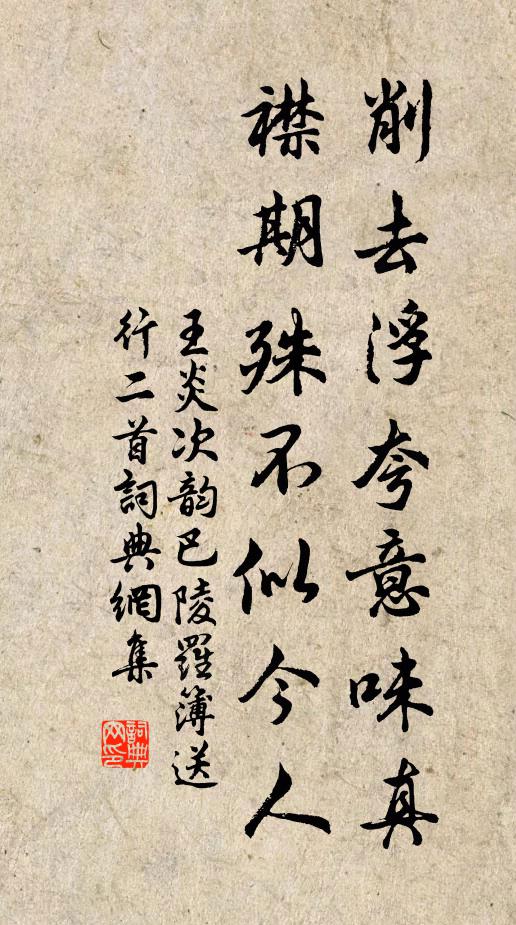 削去浮夸意味真
襟期殊不似今人
王炎次韵巴陵羅簿送
行二首詞典網集
詞典
网印